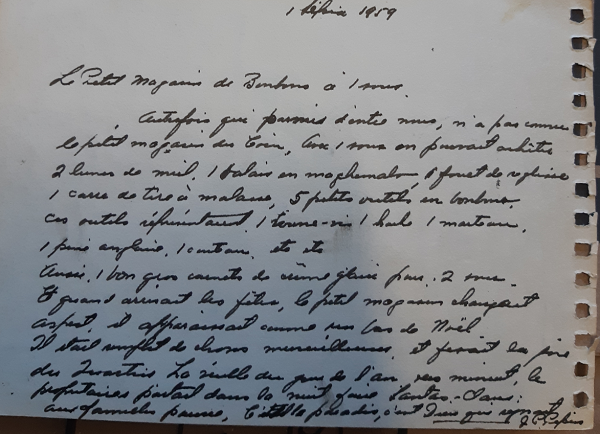 1 1959
Le Petit Magasin de Bonbons à 1 sous.
Autrefois qui parmis d'entre nous, n'a pas connu
le petit magasin du Coin, Avec 1 sous on pouvait acheter
2 lunes de miel, 1 balais en 1 fouet de réglisse
1 carré de tire à malasse, 5 petits outils en bonbons.
Ces outils représentaient 1 tourne-vis 1 hache 1 marteau,
1 anglaise, 1 couteau etc etc
Aussi, 1 bon gros cornets de crème glacé pour 2 sous.
Et quand arrivait les fêtes, le petit magasin changeait
aspect, il apparaissait comme un bas de Noël
Il était remplit de choses merveilleuses, et faisait la joie
des Quartiers La veille du jour de l'an vers minuit, le
propriétaires partait dans la nuit
aux familles pauvre, C'était le paradis, c'est